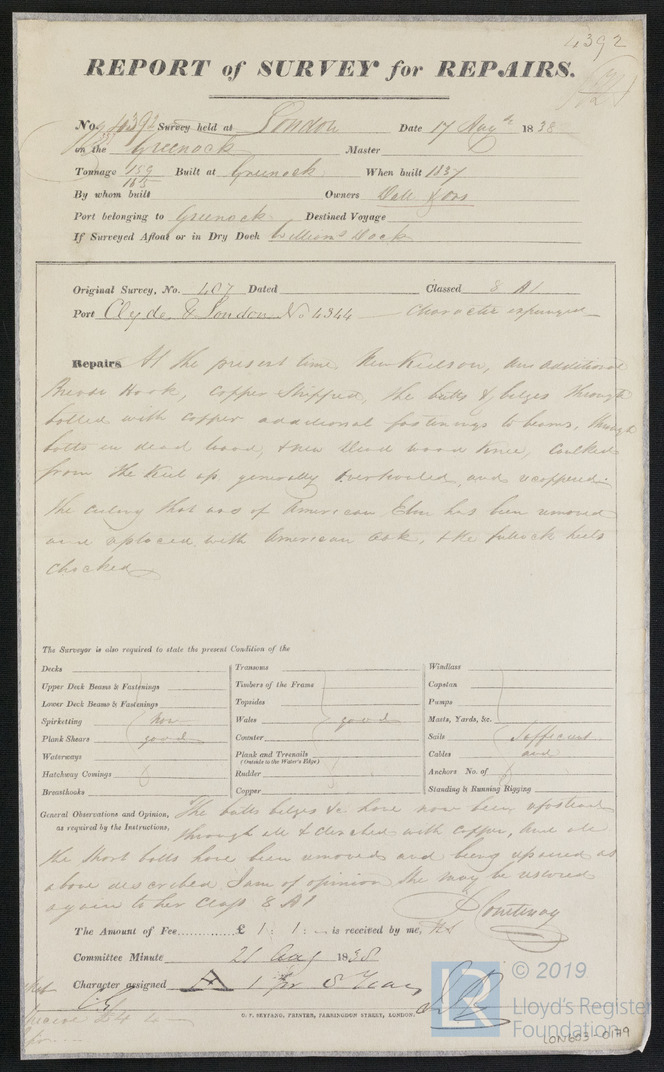 4392
REPORT of SURVEY for REPAIRS.
No. 4392 Survey held at London Date 17 Aug 1838
on the Greenock Master
Tonnage 159 Built at Greenock When built 1837
165
By whom built Owners
Port belonging to Greenock Destined Voyage
If Surveyed Afloat or in Dry Dock Williams Dock
Original Survey, No. 407 Dated Classed 8 A1
Port Clyde & London No 4344 Character expunged
Repairs At the present time New Keelson, an additional
Breast Hook, Copper Stripped, the butts & bilges through
bolted with copper additional fastenings to beams, through
bolts in dead wood, & new Dead wood Knee, Caulked
from the Keel up generally Overhauled, and recoppered.
The ceiling that was of American Elm has been removed
and replaced with American Oak, & the futtock heels
chocked
The Surveyor is also required to state the present Condition of the
Decks Transoms Windlass
Upper Deck Beams & Fastenings Timbers of the Frame Capstan
Lower Deck Beams & Fastenings Topsides Pumps
Spirketting now Wales good Masts, Yards, &c.
Plank Shears good Counter Sails Sufficient
Waterways Plank and Treenails Cables and
(Outside to the Water's Edge)
Hatchway Comings Rudder Anchors No. of
Breasthooks Copper Standing & Running Rigging
General Observations and Opinion, The butts bilges &c have now been refastened
as required by the Instructions, through all & clenched with copper, and all
the short bolts have been removed and being repaired as
above described I am of opinion She may be restored
again to her Class 8 A1
Courtenay
The Amount of Fee £ 1 : 1 : — is received by me,
Committee Minute 21 Aug 1838
Character assigned A 1 for 8 Years
C. F. SEYFANG, PRINTER, FARRINGDON STREET, LONDON.
© 2019
Lloyd's Register
Foundation
LON603-0179